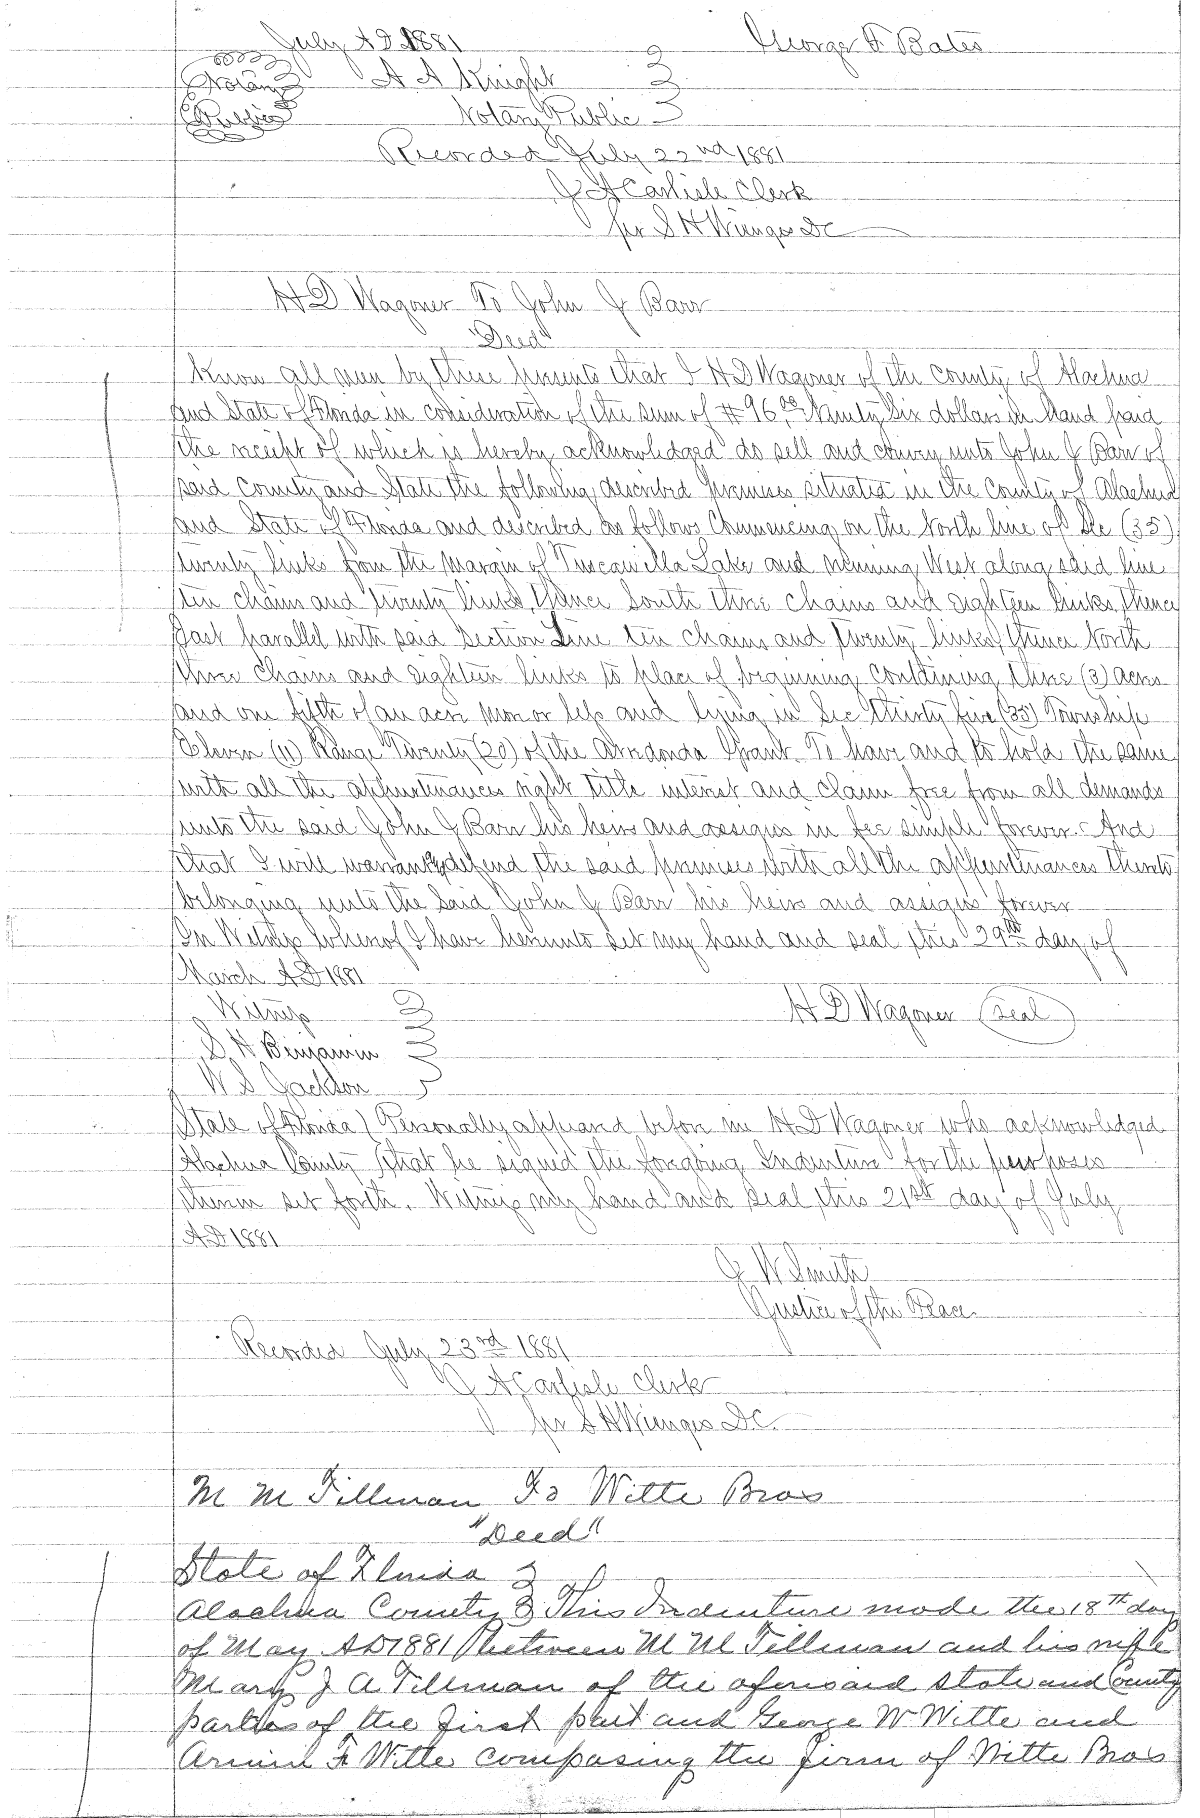 July AD 1881 George F Bates
Notary A A Knight
Public Notary Public
Recorded July 22nd 1881
J A Carlisle Clerk
per S H Wienges DC
H D Wagoner To John J Barr
"Deed"
Know all men by these presents that I H D Wagoner of the County of Alachua
and State of Florida in cosideration of the sum of #96.00 Ninety Six dollars in hand paid
the receipt of which is hereby acknowledged do sell and convey unto John J Barr of
said County and State the following described premises situated in the County of Alachua
and State of Florida and described as follows Commencing on the North line of Sec (35)
twenty links from the margin of Tuscawilla Lake and running West along said line
ten chains and twenty links, thence South three chains and eighteen links, thence
East parallel with said Section Line ten chains and twenty links, thence North
three chains and eighteen links to place of beginning containing three (3) acres
and one fifth of an acre more or less and lying in Sec thirty five (35) Township
Eleven (11) Range Twenty (20) of the Arredonda Grant. To have and to hold the same
with all the appurtenances right title interest and claim free from all demands
unto the said John J Barr his heirs and assigns in fee simple forever. And
that I will warrant & defend the said premises with all the appurtenances thereto
belonging unto the said John J Barr his heirs and assigns forever
In Witness whereof I have hereunto set my hand and seal this 29th day of
March AD 1881
Witness H D Wagoner Seal
S H Benjamin
W S Jackson
State of Florida) Personally appeared before me H D Wagoner who acknowledged
Alachua County that he signed the forgoing Indenture for the purposes
therein set forth. Witness my hand and seal this 21st day of July
AD 1881
J W Smith
Justice of the Peace
Recorded July 23rd 1881
J A Carlisle Clerk
per S H Wienges D.C.
M M Tillman To Witte Bros
"Deed"
State of Florida
Alachua County This Indenture made the 18th day
of May AD 1881 between M M Tillman and his wife
Mary J A Tillman of the aforesaid State and County
parties of the first part and George W Witte and
Armin F Witte composing the firm of Witte Bros